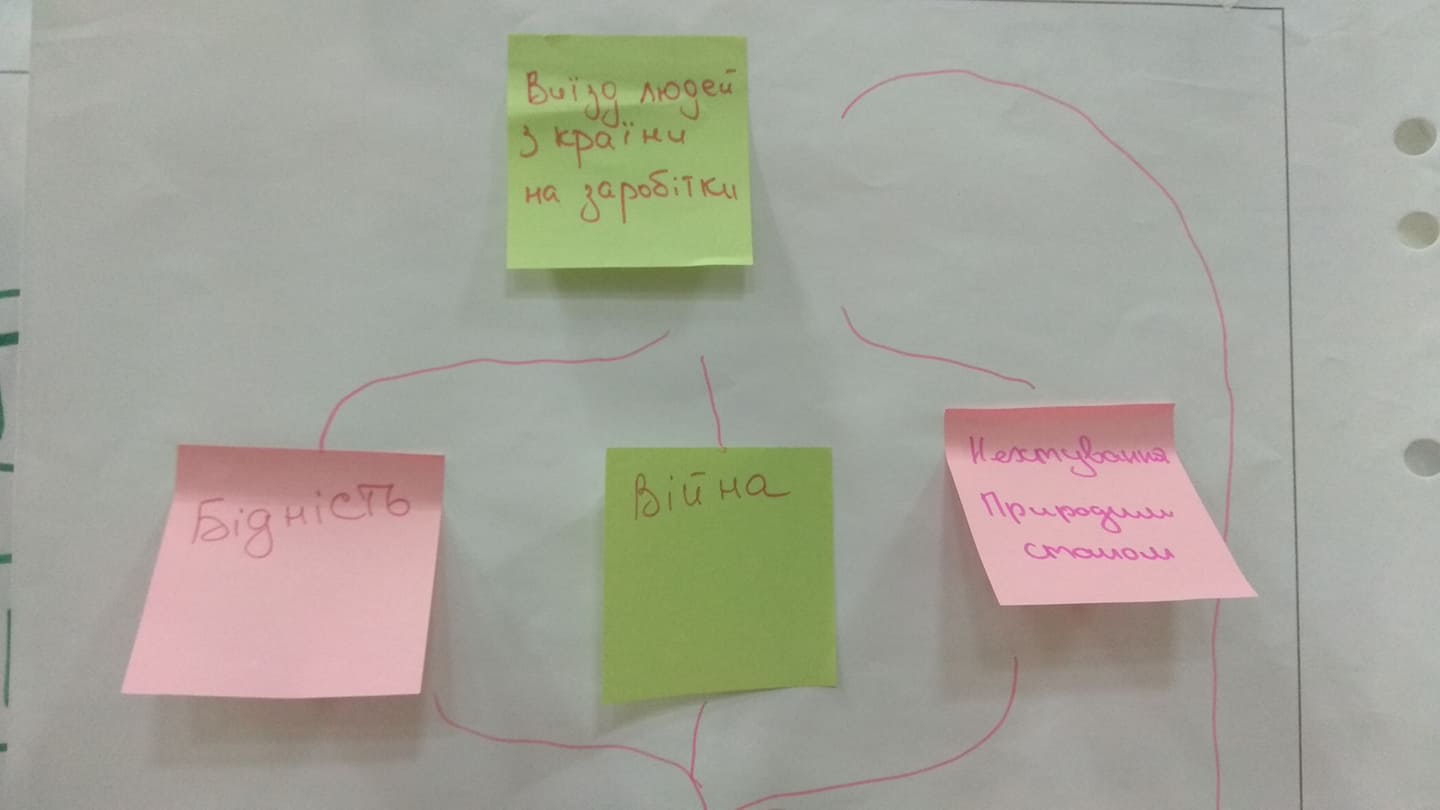 Виїзд людей
з країни
на заробітки
Бідність
Війна
Нехтування
Природим
станом